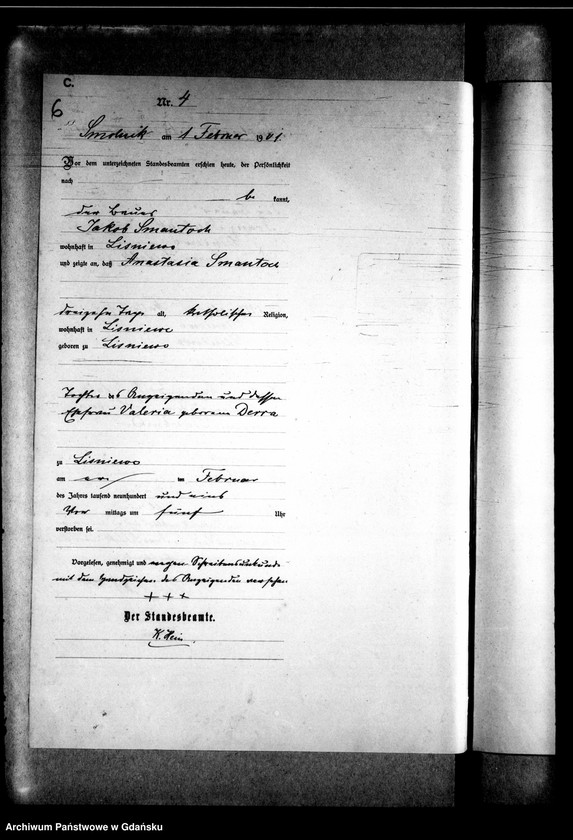 C.
6
Nr. 4
Smolnik am 1 Februar 1901.
Vor dem unterzeichneten Standesbeamten erschien heute, der Persönlichkeit
nach
be kannt,
der Bauer
Jakob Smantoch
wohnhaft in Lisniewo
und zeigte an, daß Anastasia Smantoch
dreizehn Tage alt, katholischer Religion,
wohnhaft in Lisniewo
geboren zu Lisniewo
Tochter des Anzeigenden und dessen
Ehefrau Valeria geborene Derra
zu Lisniewo
am im Februar
des Jahres tausend neunhundert und eins
Vor mittags um fünf Uhr
verstorben sei.
Vorgelesen, genehmigt und wegen Schreibensunkunde
mit dem Handzeichen des Anzeigenden versehen.
+ + +
Der Standesbeamte.
K. Hein
Archiwum Państwowe w Gdańsku